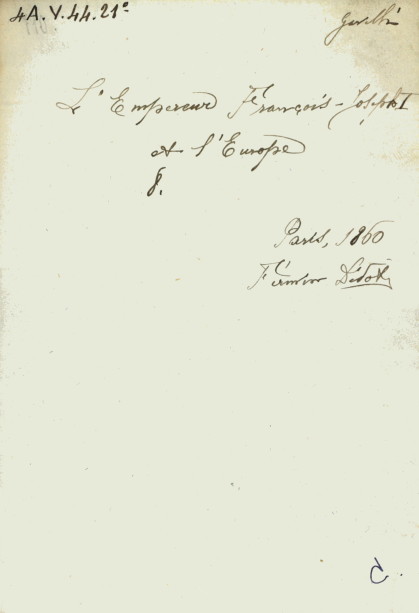 4A.V.44.21º
L'Empereur François-Joseph I
et l'Europe
8.
Paris, 1860
Firmin Didot
C.